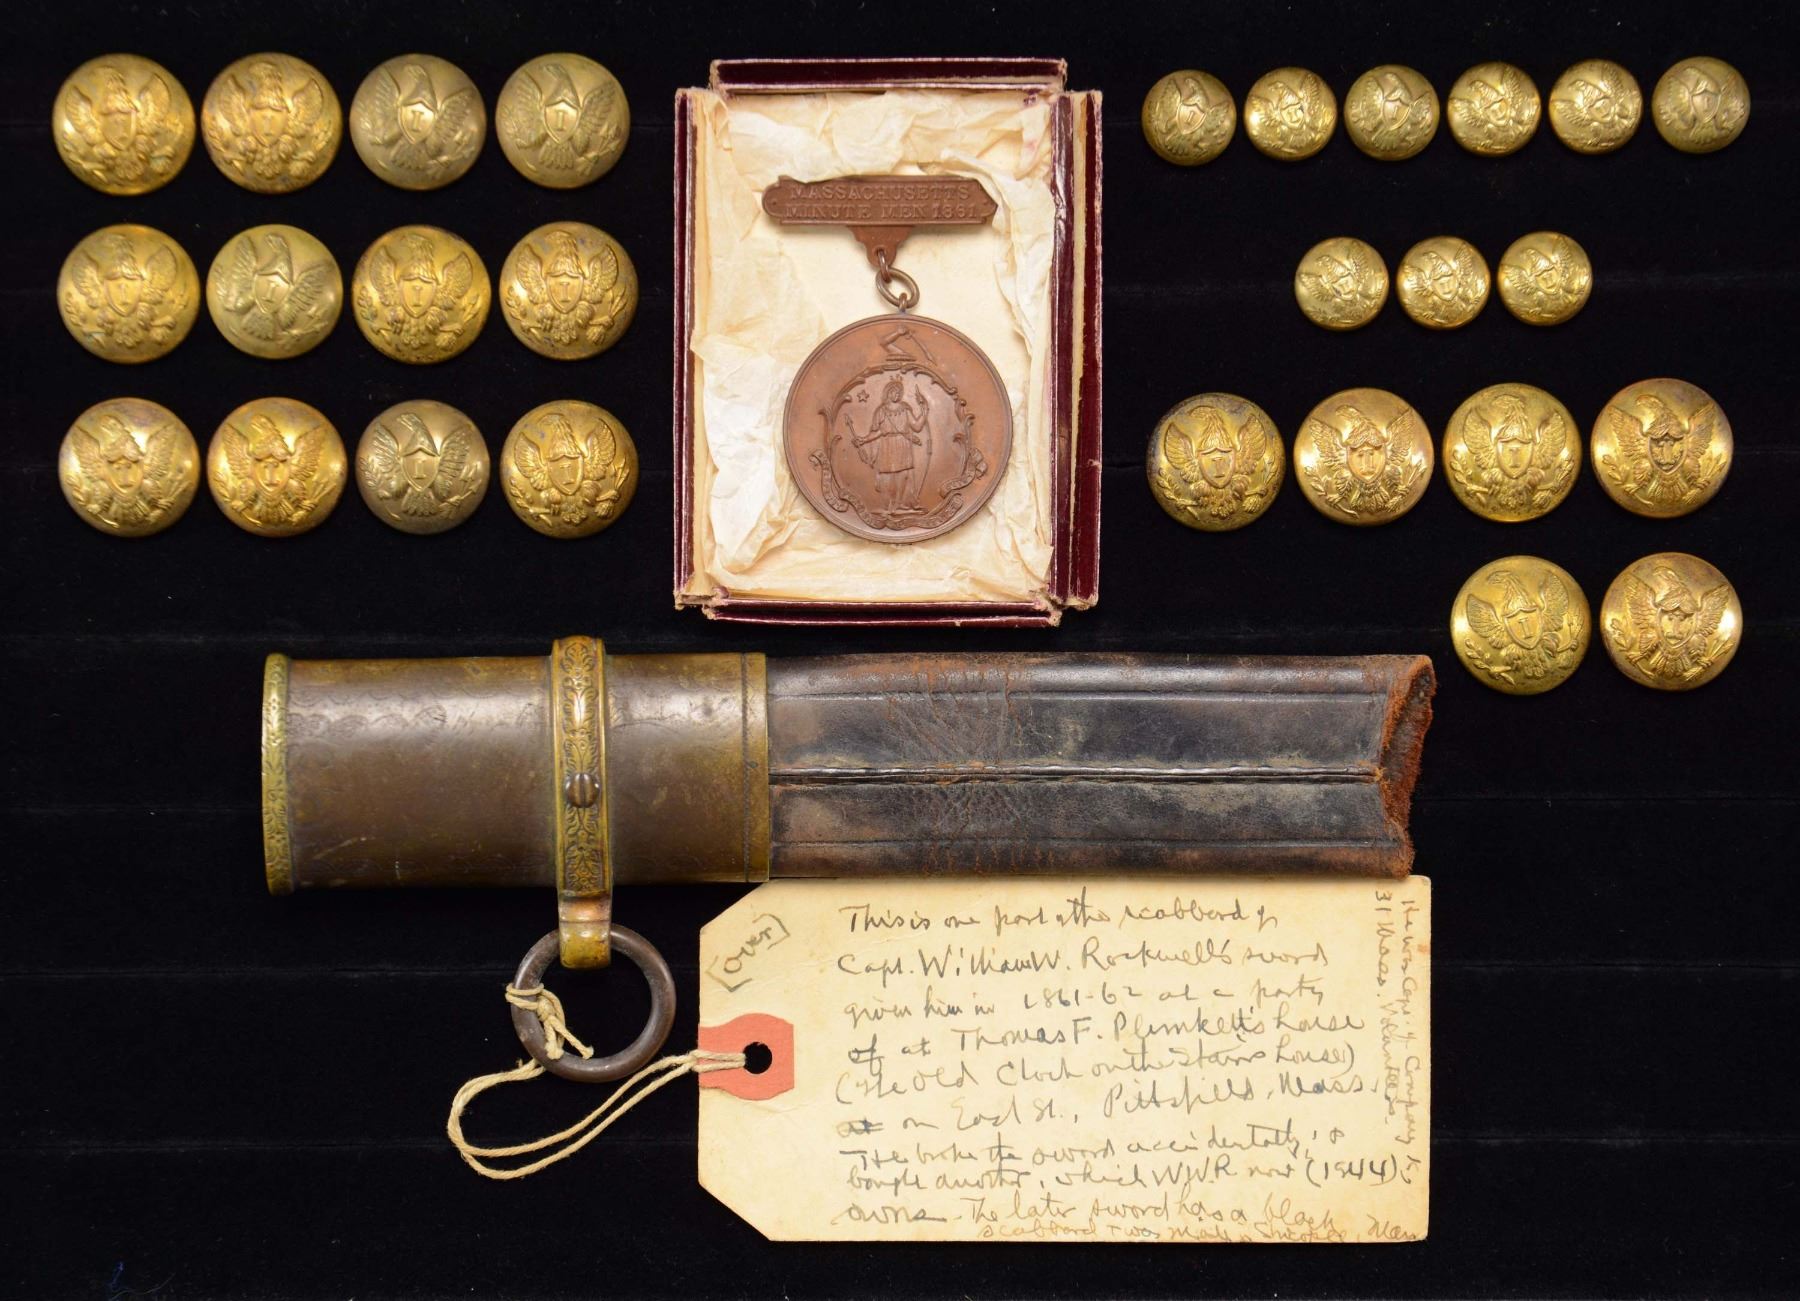 MASSACHUSETTS
MINUTE MEN 1861
(Over)
This is one part of the scabbard of
Capt. William W. Rockwell's sword
given him in 1861-62 at a party
of at Thomas F. Plunkett's house
(The Old Clock on the Stairs house)
at on East St., Pittsfield, Mass.
He broke the sword accidentally, &
bought another, which W.W.R. now (1944)
owns. The later sword has a black
scabbard & was made Mass
He was Capt. of Company K,
31 Mass. Volunteers.